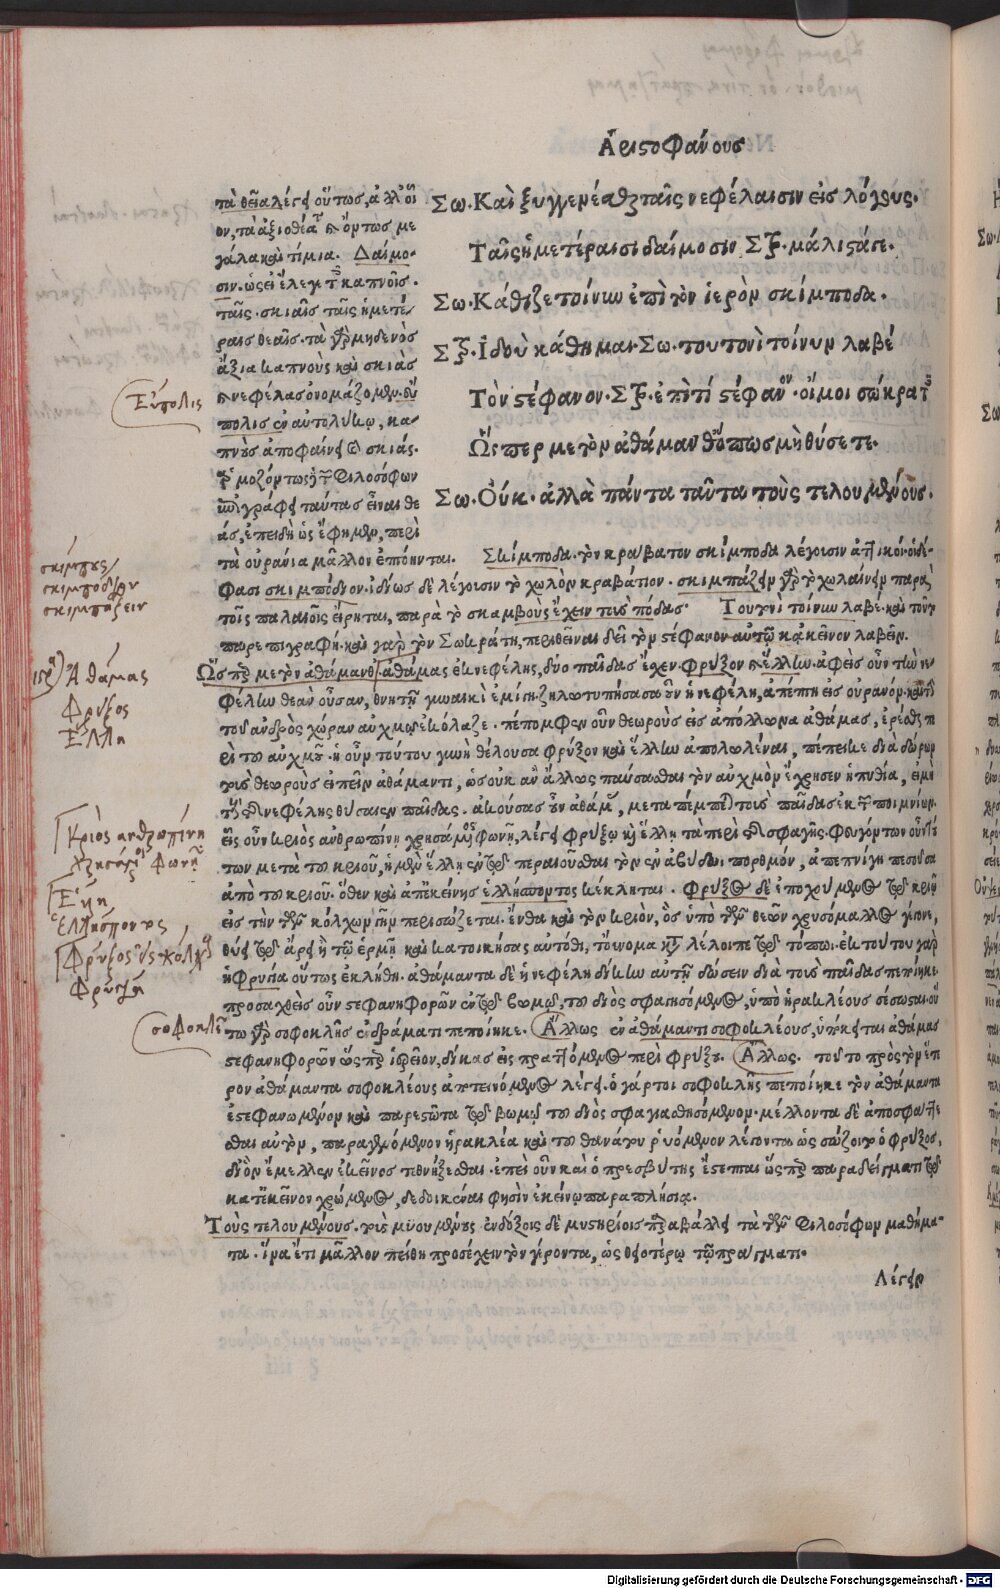 Ἀριστοφάνους
Σω. Καὶ ξυγγενέσθαι ταῖς νεφέλαισιν εἰς λόγους.
Ταῖς ἡμετέραισι δαίμοσιν Στρ. μάλιστά γε.
Σω. Κάθιζε τοίνυν ἐπὶ τὸν ἱερὸν σκίμποδα.
Στρ. Ἰδοὺ κάθημαι. Σω. τουτονὶ τοίνυν λαβὲ
Τὸν στέφανον. Στρ. ἐπὶ τί στέφανον. οἴμοι σώκρατες
Ὥσπερ με τὸν ἀθάμανθ' ὅπως μὴ θύσετε.
Σω. Οὔκ. ἀλλὰ πάντα ταῦτα τοὺς τελουμένους.
τὰ θεῖα λέγει οὕτως, ἀλλ' οἷ
ον, τὰ ἀξιοθέατα καὶ ὄντως με
γάλα καὶ τίμια. Δαίμο-
σιν. ὡς εἰ ἔλεγε τοῖς καπνοῖς.
ταῖς σκιαῖς ταῖς ἡμετέ-
ραις θεαῖς. τὰ γὰρ μηδενὸς
ἄξια καπνοὺς καὶ σκιὰς
καὶ νεφέλας ὀνομάζομεν. εὔ
πολις ἐν αὐτολύκῳ, κα-
πνοὺς ἀποφαίνει καὶ σκιάς.
φιλοσόφων
γράφει ταύτας εἶναι θε
άς, ἐπειδὴ ὡς ἔφημεν, περὶ
τὰ οὐράνια μᾶλλον ἐπτόηνται. Σκίμποδα. τὸν κράβατον σκίμποδα λέγουσιν ἀττικοί. οἱ δέ
φασι σκιμπόδιον. ἰδίως δὲ λέγουσιν τὸ χωλὸν κραβάτιον. σκιμπάζειν γὰρ τὸ χωλαίνειν παρὰ
τοῖς παλαιοῖς εἴρηται, παρὰ τὸ σκαμβοὺς ἔχειν τοὺς πόδας. Τουτονὶ τοίνυν λαβέ. καὶ τοῦτο
παρεπιγραφή. καὶ γὰρ τὸν Σωκράτη, περιθεῖναι δεῖ τὸν στέφανον αὐτῷ κἀκεῖνον λαβεῖν.
Ὥσπερ με τὸν ἀθάμανθ'. ἀθάμας ἐκ νεφέλης, δύο παῖδας ἔχεν. φρύξον καὶ ἕλλην. ἀφεὶς οὖν τὴν νε
φέλην θεὰν οὖσαν, θνητῇ γυναικὶ ἐμίγη. ζηλοτυπήσασα οὖν ἡ νεφέλη, ἀπέπτη εἰς οὐρανόν. καὶ τὴν
τοῦ ἀνδρὸς χώραν αὐχμῷ ἐκόλαζε. πέπομφεν οὖν θεωροὺς εἰς ἀπόλλωνα ἀθάμας, ἐρέσθαι πε
ρὶ τοῦ αὐχμοῦ. ἡ οὖν τούτου γυνὴ θέλουσα φρύξον καὶ ἕλλην ἀπολωλέναι, πέπεικε διὰ δώρων
τοὺς θεωροὺς εἰπεῖν ἀθάμαντι, ὡς οὐκ ἂν ἄλλως παύσασθαι τὸν αὐχμὸν ἔχρησεν ἡ πυθία, εἰ μὴ
τοὺς τῆς νεφέλης θύσειεν παῖδας. ἀκούσας οὖν ἀθάμας, μεταπέμπεται τοὺς παῖδας ἐκ τῶν ποιμνίων.
εἷς οὖν κριὸς ἀνθρωπίνῃ χρησάμενος φωνῇ, λέγει φρύξῳ καὶ ἕλλῃ τὰ περὶ τῆς σφαγῆς. φευγόντων οὖν τού
των μετὰ τοῦ κριοῦ, ἡ μὲν ἕλλη ἐν τῷ περαιοῦσθαι τὸν ἐν ἀβύδωι πορθμόν, ἀπεπνίγη πεσοῦσα
ἀπὸ τοῦ κριοῦ. ὅθεν καὶ ἀπ' ἐκείνης ἑλλήσποντος κέκληται. Φρύξος δὲ ἐποχούμενος τῷ κριῷ
εἰς τὴν τῶν κόλχων γῆν περισώζεται. ἔνθα καὶ τὸν κριὸν, ὃς ὑπὸ τῶν θεῶν χρυσόμαλλος γέγονε,
θύει τῷ ἄρει ἢ τῷ ἑρμῇ καὶ κατοικήσας αὐτόθι, τοὔνομα λέλοιπε τῷ τόπωι. ἐκ τούτου γὰρ
ἡ φρυγία οὕτως ἐκλήθη. ἀθάμαντα δὲ ἡ νεφέλη δίκην αὐτῇ δώσειν διὰ τοὺς παῖδας πεποίηκε.
προσαχθεὶς οὖν στεφανηφορῶν ἐν τῷ βωμῷ, τοῦ διὸς σφαγησόμενος, ὑπὸ ἡρακλέους σέσωσται. οὕ
τω γὰρ σοφοκλῆς ἐν δράματι πεποίηκε. Ἄλλως ἐν ἀθάμαντι σοφοκλέους, ὑπόκειται ἀθάμας
στεφανηφορῶν ὥσπερ ἱερεῖον, δίκας εἰσπραττόμενος περὶ φρύξου. Ἄλλως. τοῦτο πρὸς τὸν ἕτε
ρον ἀθάμαντα σοφοκλέους ἀποτεινόμενος λέγει. ὁ γάρτοι σοφοκλῆς πεποίηκε τὸν ἀθάμαντα
ἐστεφανωμένον καὶ παρεστῶτα τῷ βωμῷ τοῦ διὸς σφαγιασθησόμενον. μέλλοντα δὲ ἀποσφάττε
σθαι αὐτὸν, παραγενόμενον ἡρακλέα καὶ τοῦ θανάτου ῥυόμενον λέγοντα ὡς σώζοιτο ὁ φρύξος,
δι' ὃν ἔμελλεν ἐκεῖνος τεθνήξεσθαι. ἐπεὶ οὖν καὶ ὁ πρεσβύτης ἔστεπται ὥσπερ παραδείγματι τῷ
κατ' ἐκεῖνον χρώμενος, δεδοικέναι φησὶν ἐκείνῳ παραπλήσια.
Τοὺς τελουμένους. τοὺς μυουμένους ἐνδόξοις δὲ μυστηρίοις παραβάλλει τὰ τῶν φιλοσόφων μαθήμα-
τα. ἵνα ἔτι μᾶλλον πείθῃ προσέχειν τὸν γέροντα, ὡς θειοτέρῳ τῷ πράγματι.
Λέγειν
Εὔπολις
σκίμπους
σκιμπόδιον
σκιμπάζειν
Ἀθάμας
Φρύξος
Ἕλλη
Κριὸς ἀνθρωπίνῃ
χρησάμενος φωνῇ
Ἕλλη
Ἑλλήσποντος
Φρύξος εἰς κόλχους
Φρυγία
σοφοκλῆς
Digitalisierung gefördert durch die Deutsche Forschungsgemeinschaft - DFG